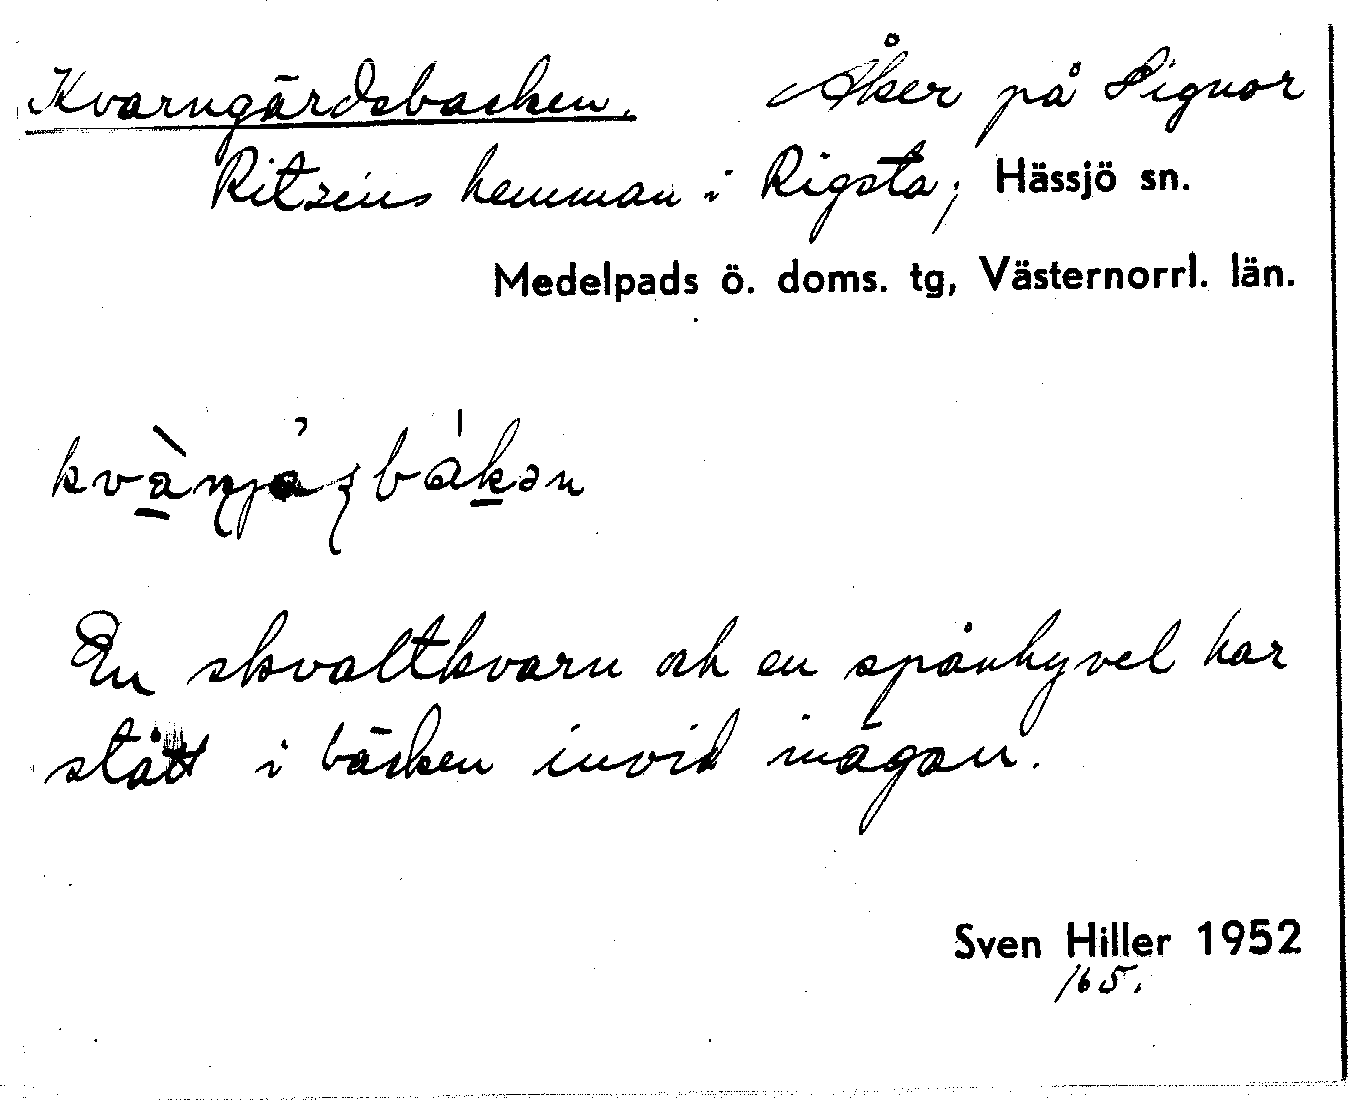 Kvarngärdsbacken. Åker på Signar
Ritzéns hemman i Rigsta, Hässjö sn.
Medelpads ö. doms. tg, Västernorrl. län.
En skvaltkvarn och en spånhyvel har
stått i bäcken invid inägan.
Sven Hiller 1952
165.